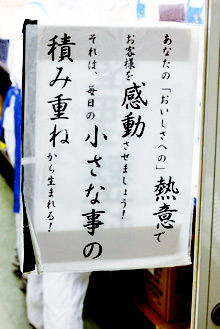 あなたの「おいしさへの」熱意で
お客様を感動させましょう！
それは、毎日の小さな事の
積み重ねから生まれる！